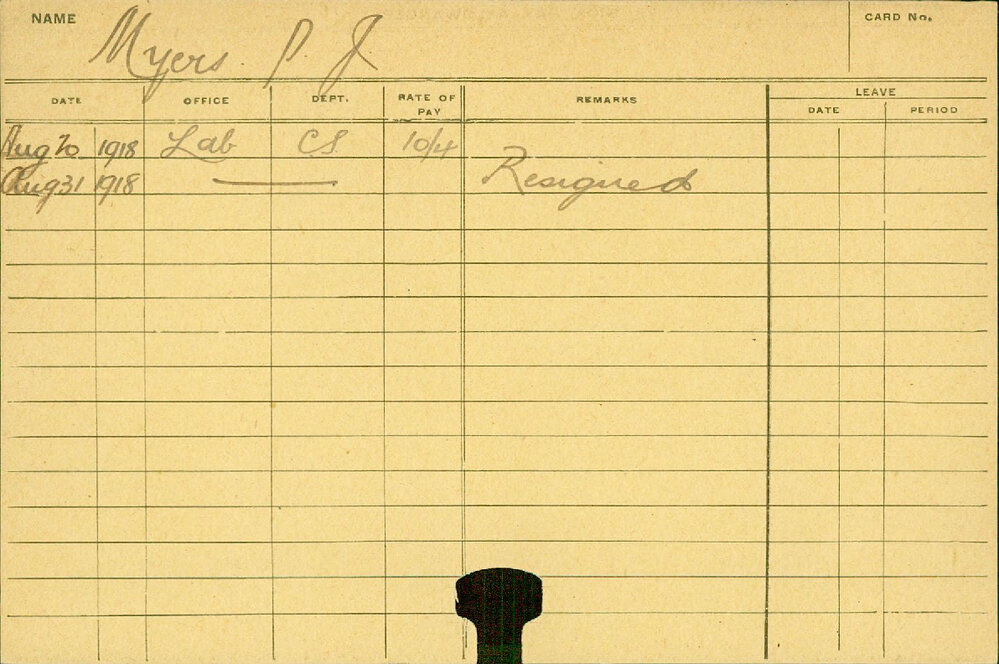 NAME Myers P. J. CARD No.
DATE OFFICE DEPT. RATE OF PAY REMARKS LEAVE
DATE PERIOD
Aug 20 1918 Lab C.S. 10/4
Aug 31 1918 —— Resigned